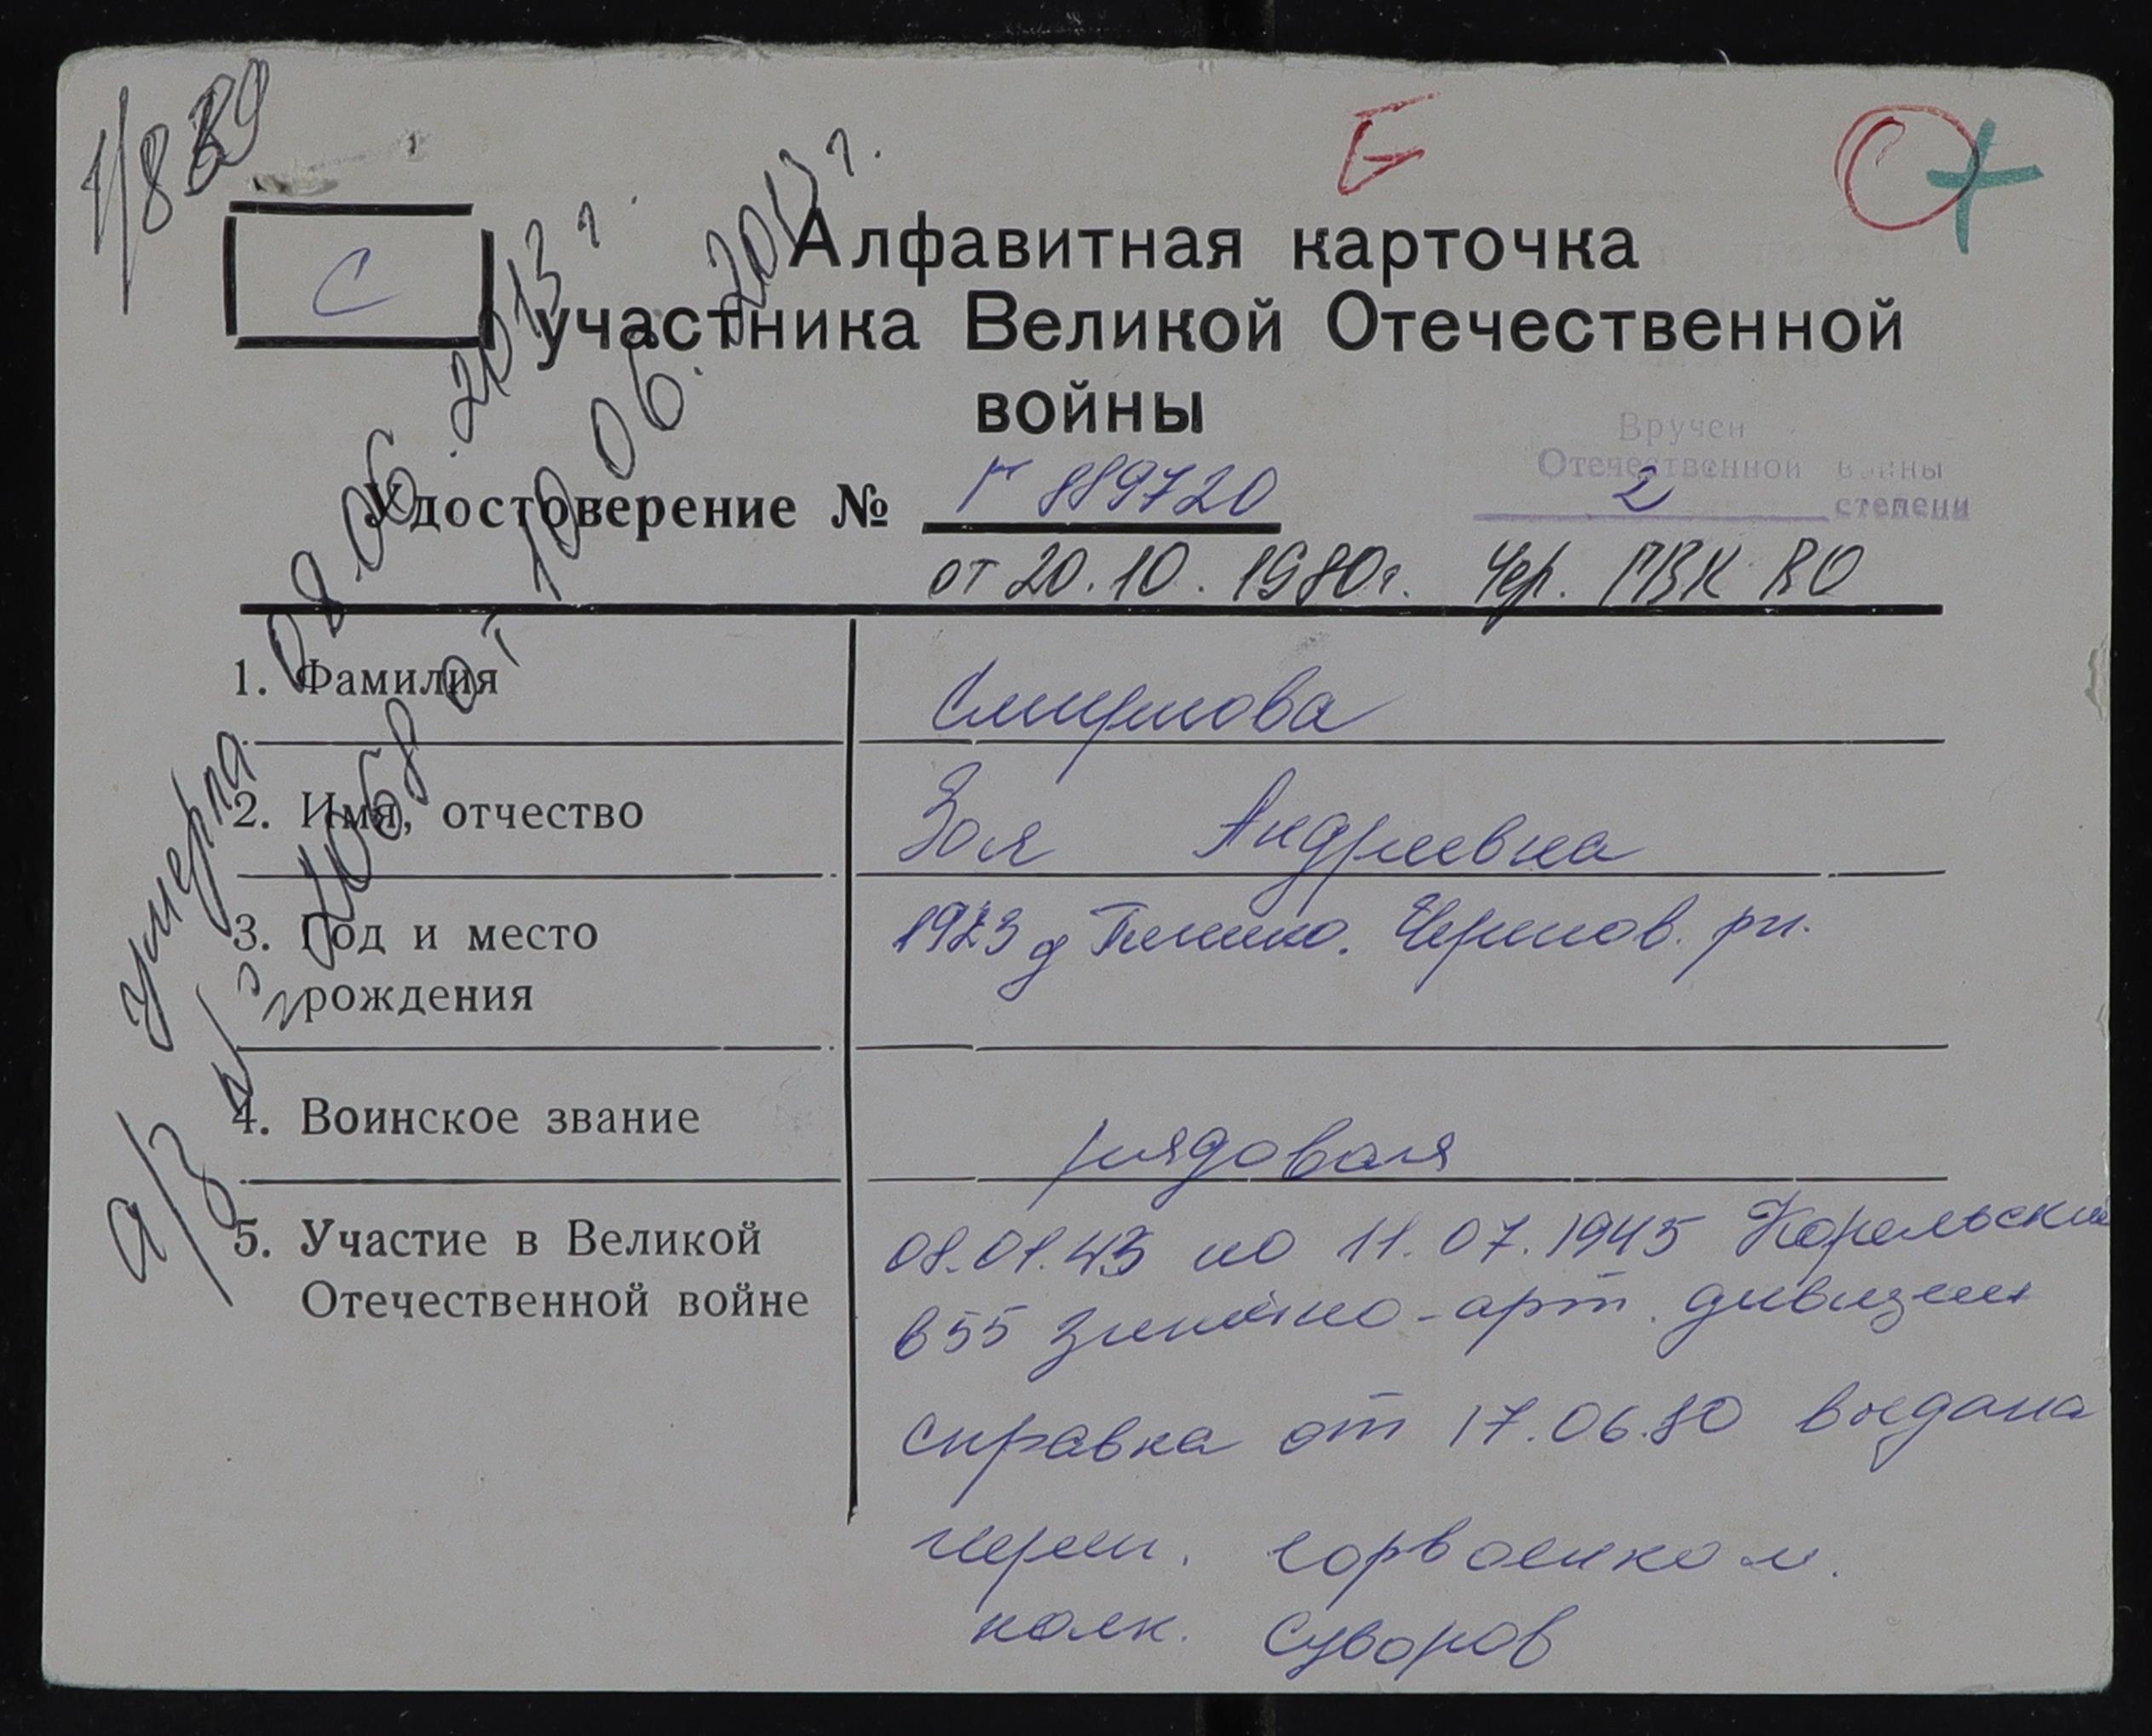 1/889
С
Б
Алфавитная карточка
участника Великой Отечественной
войны
Вручен
Отечественной войны
2 степени
Удостоверение № Г 889720
от 20.10.1980г. Чер. ГВК ВО
1. Фамилия Смирнова
2. Имя, отчество Зоя Андреевна
3. Год и место
рождения
1923 д Черепов. рн.
4. Воинское звание рядовая
5. Участие в Великой
Отечественной войне
08.01.43 по 11.07.1945 Карельский
в 55 зенитно-арт. дивизии
справка от 17.06.80 выдана
череп. горвоенком.
полк. Суворов
умерла 08.06.2013 г.
а/з № 1068 от 10.06.2013 г.